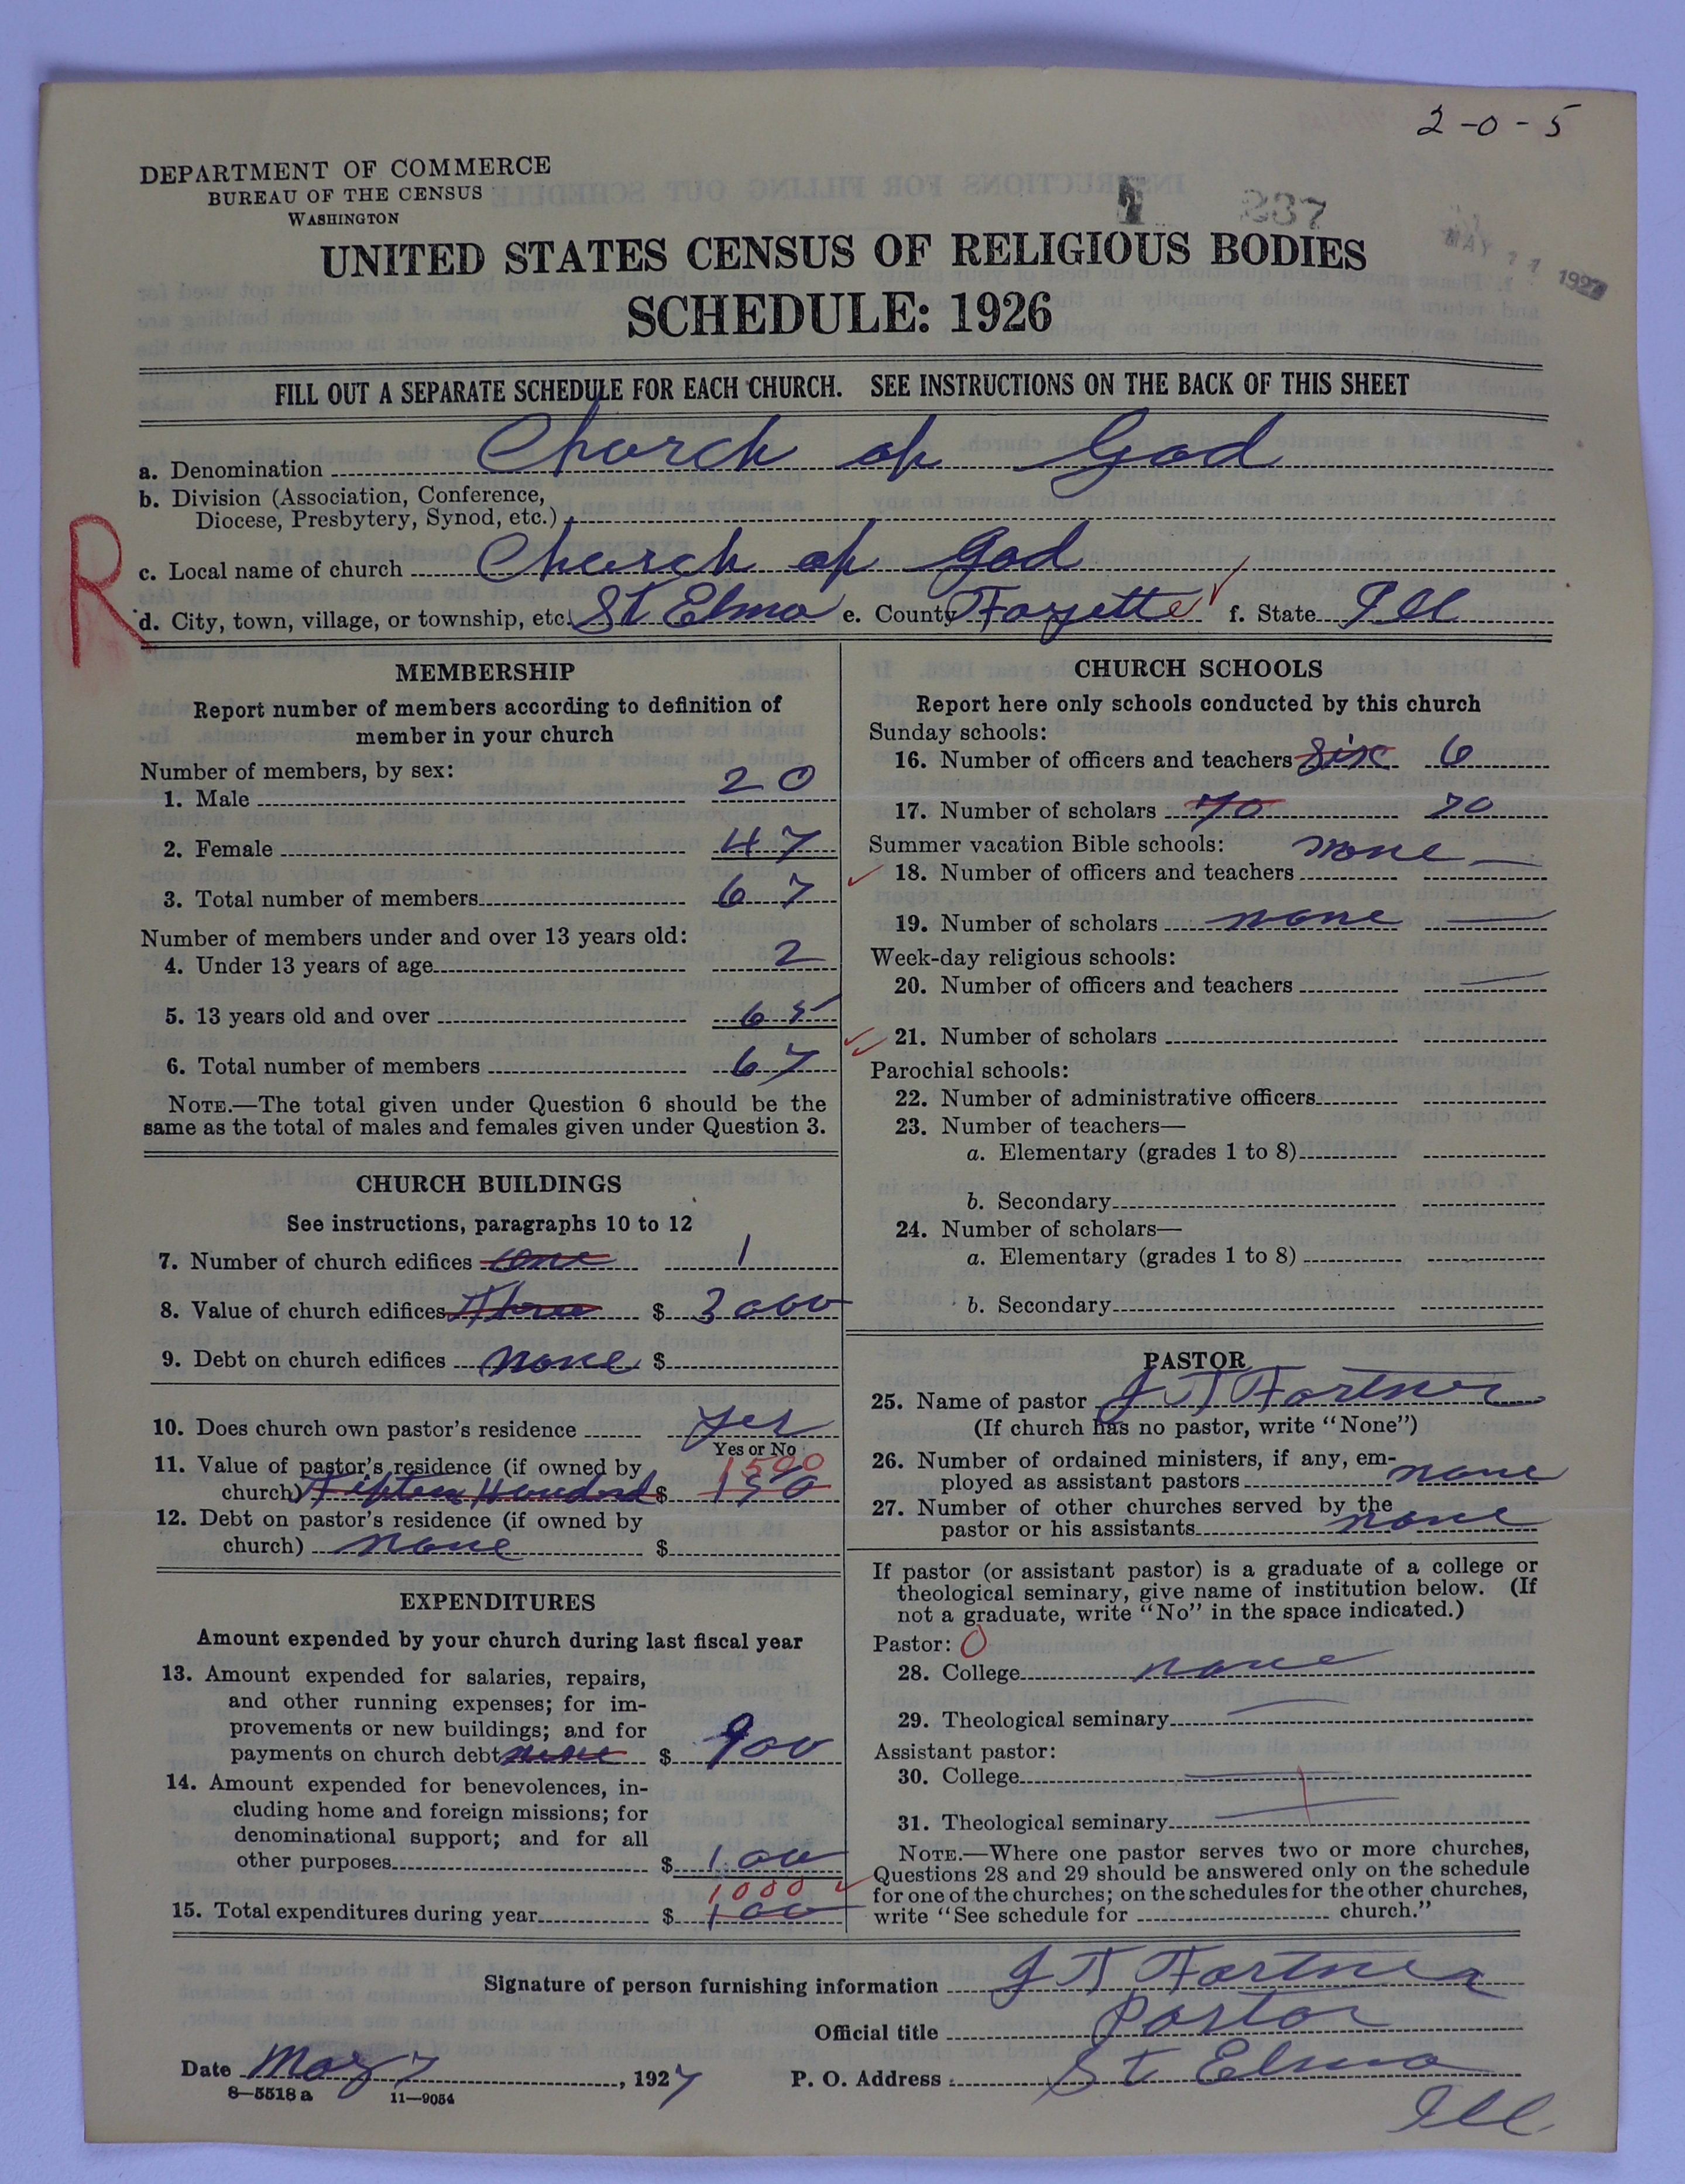 2-0-5
DEPARTMENT OF COMMERCE
BUREAU OF THE CENSUS
WASHINGTON
237
MAY 1927
UNITED STATES CENSUS OF RELIGIOUS BODIES
SCHEDULE: 1926
FILL OUT A SEPARATE SCHEDULE FOR EACH CHURCH. SEE INSTRUCTIONS ON THE BACK OF THIS SHEET
a. Denomination Church of God
b. Division (Association, Conference,
Diocese, Presbytery, Synod, etc.)
R
c. Local name of church Church of God
d. City, town, village, or township, etc. St Elmo e. County Fayette f. State Ill
MEMBERSHIP
Report number of members according to definition of
member in your church
Number of members, by sex:
1. Male 20
2. Female 47
3. Total number of members 67
Number of members under and over 13 years old:
4. Under 13 years of age 2
5. 13 years old and over 65
6. Total number of members 67
NOTE.—The total given under Question 6 should be the
same as the total of males and females given under Question 3.
CHURCH BUILDINGS
See instructions, paragraphs 10 to 12
7. Number of church edifices one 1
8. Value of church edifices Three $ 3000
9. Debt on church edifices none $
10. Does church own pastor's residence yes
Yes or No
11. Value of pastor's residence (if owned by 1500
church) Fifteen Hundred $ 150
12. Debt on pastor's residence (if owned by
church) none $
EXPENDITURES
Amount expended by your church during last fiscal year
13. Amount expended for salaries, repairs,
and other running expenses; for im-
provements or new buildings; and for
payments on church debt none $ 900
14. Amount expended for benevolences, in-
cluding home and foreign missions; for
denominational support; and for all
other purposes $ 100
1000
15. Total expenditures during year $ 100
CHURCH SCHOOLS
Report here only schools conducted by this church
Sunday schools:
16. Number of officers and teachers six 6
17. Number of scholars 70 70
Summer vacation Bible schools: none
18. Number of officers and teachers
19. Number of scholars none
Week-day religious schools:
20. Number of officers and teachers
21. Number of scholars
Parochial schools:
22. Number of administrative officers
23. Number of teachers—
a. Elementary (grades 1 to 8)
b. Secondary
24. Number of scholars—
a. Elementary (grades 1 to 8)
b. Secondary
PASTOR
25. Name of pastor J T Fortner
(If church has no pastor, write "None")
26. Number of ordained ministers, if any, em-
ployed as assistant pastors none
27. Number of other churches served by the
pastor or his assistants none
If pastor (or assistant pastor) is a graduate of a college or
theological seminary, give name of institution below. (If
not a graduate, write "No" in the space indicated.)
Pastor: 0
28. College none
29. Theological seminary
Assistant pastor:
30. College
31. Theological seminary
NOTE.—Where one pastor serves two or more churches,
Questions 28 and 29 should be answered only on the schedule
for one of the churches; on the schedules for the other churches,
write "See schedule for church."
Signature of person furnishing information J T Fortner
Official title Pastor
Date May 7, 1927 P. O. Address St Elmo
Ill
8—5518 a 11—9054